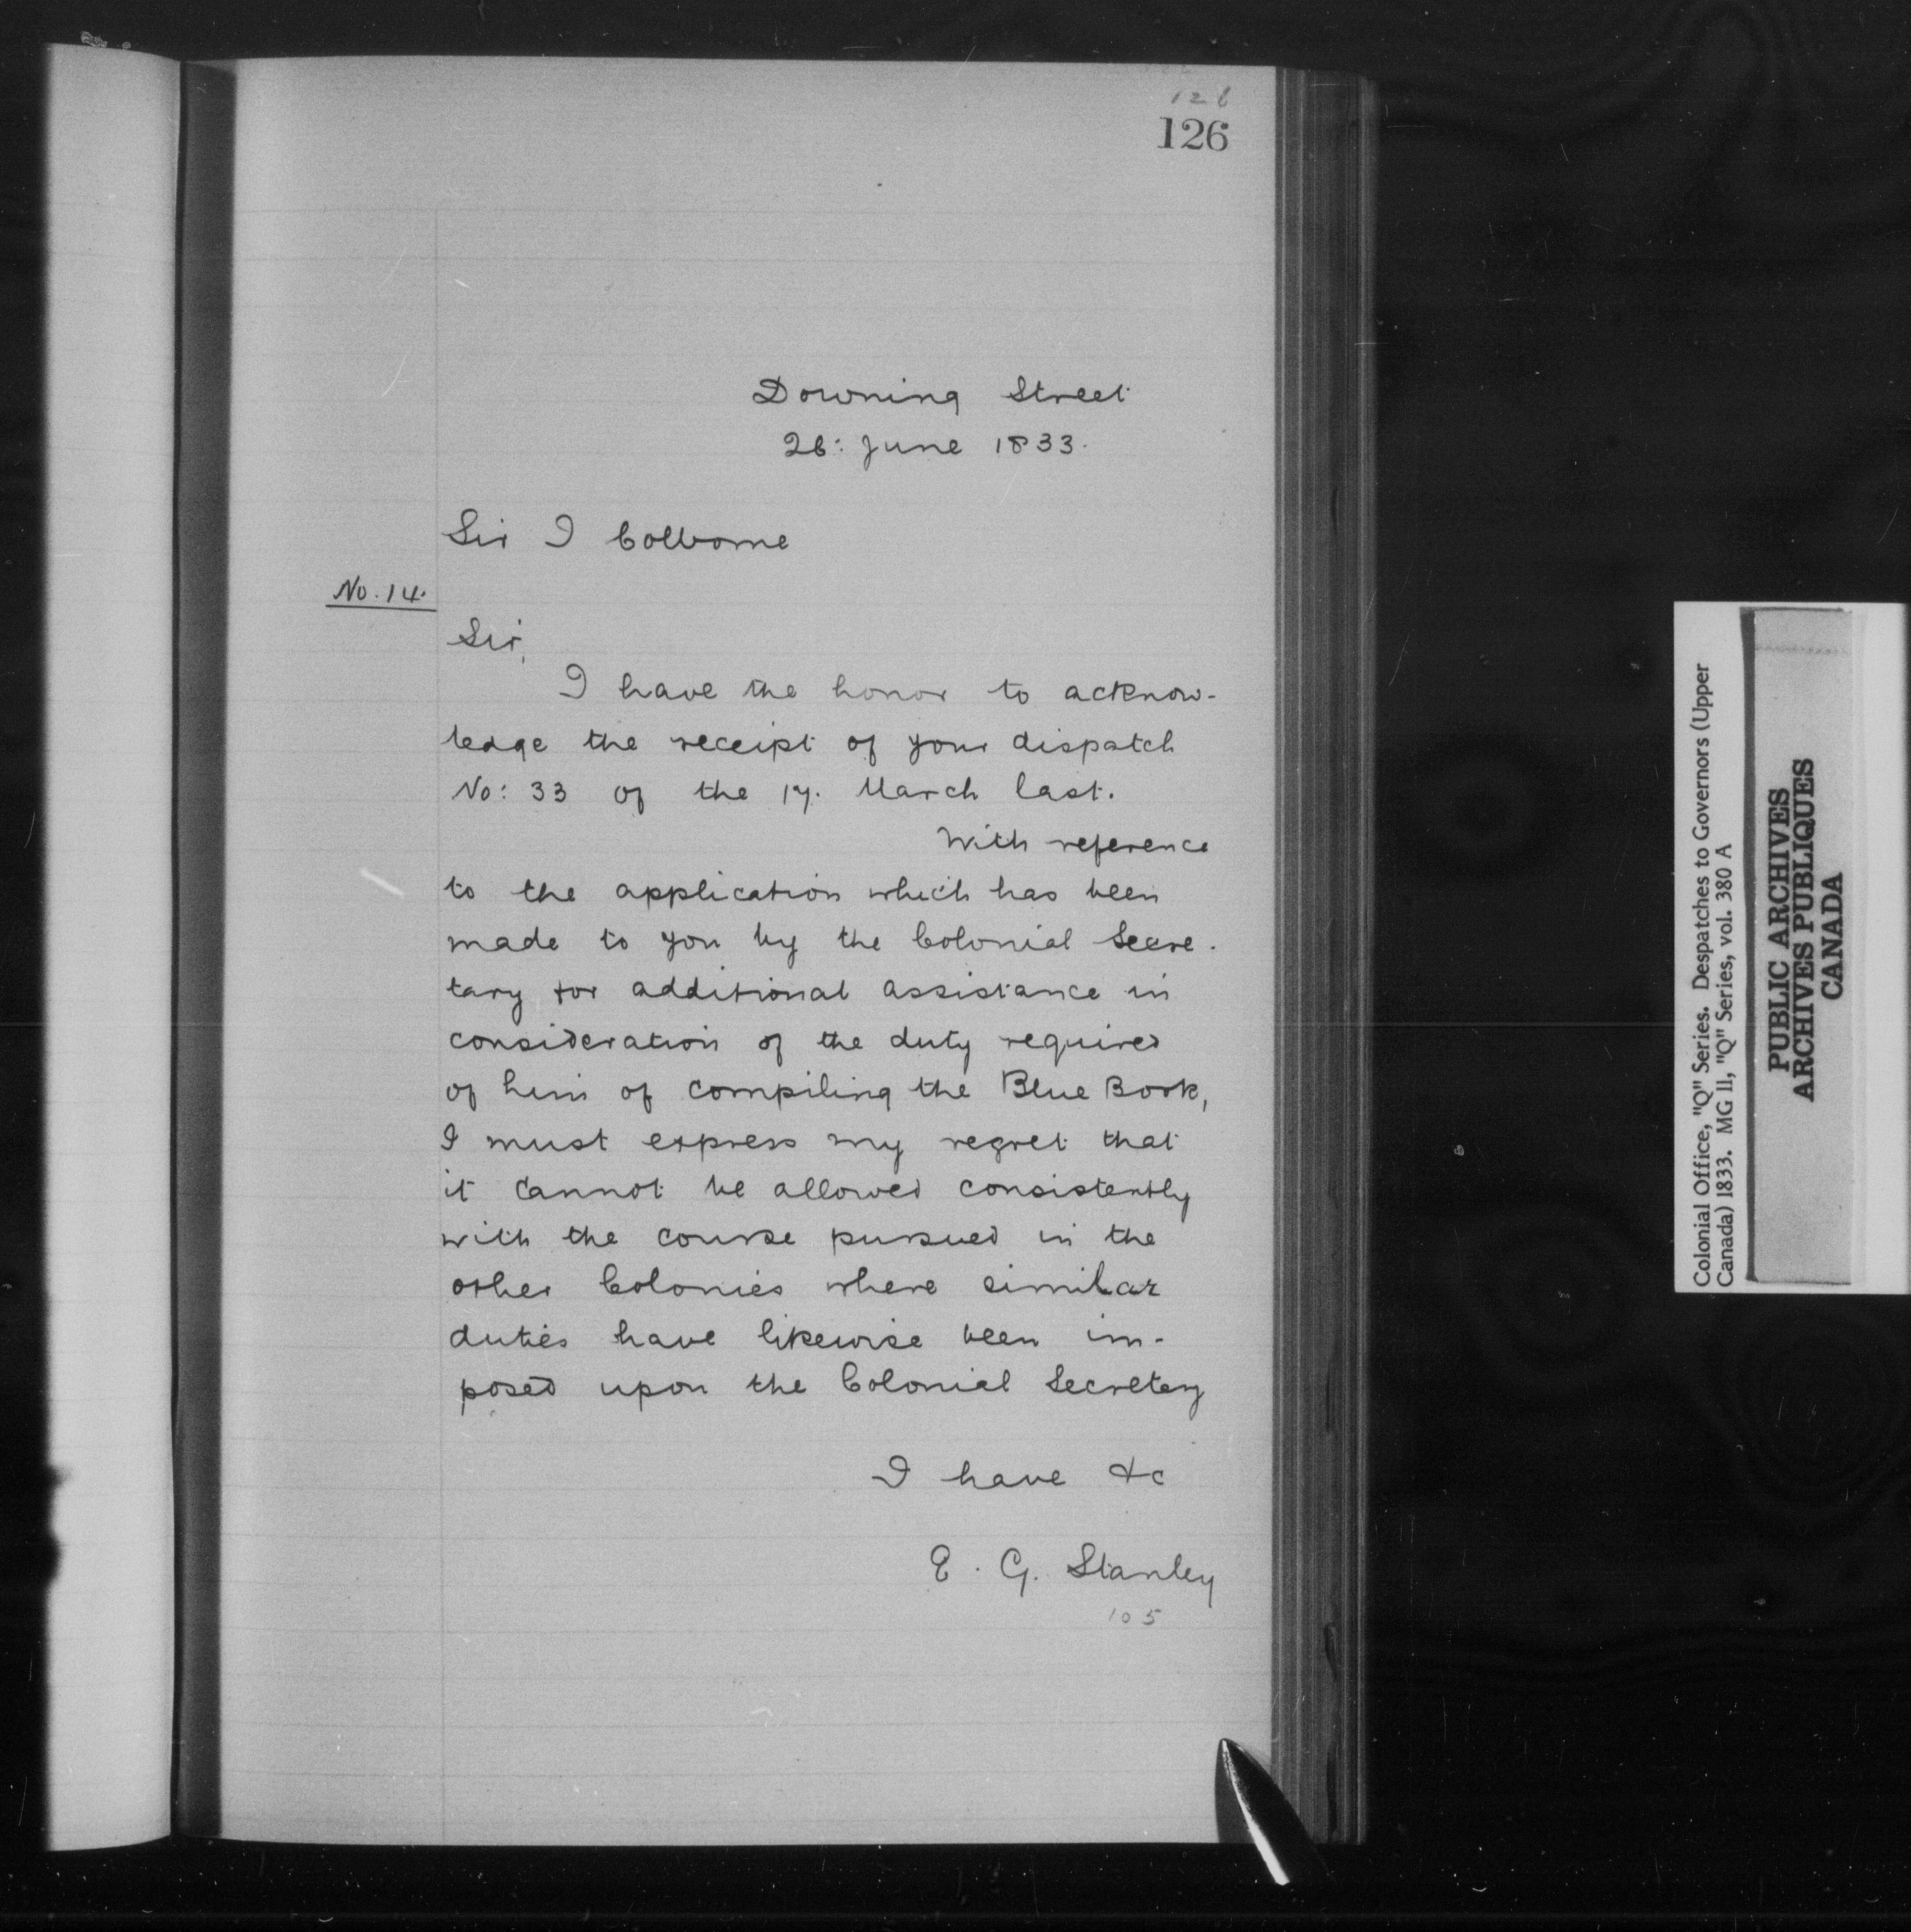 126
126
Downing Street
26: June 1833.
Sir J Colborne
No. 14.
Sir,
I have the honor to acknow-
ledge the receipt of your dispatch
No: 33 of the 17. March last.
With reference
to the application which has been
made to you by the Colonial Secre-
tary for additional assistance in
consideration of the duty required
of him of compiling the Blue Book,
I must express my regret that
it cannot be allowed consistently
with the course pursued in the
other Colonies where similar
duties have likewise been im-
posed upon the Colonial Secretary
I have &c
E. G. Stanley
105
Colonial Office, "Q" Series. Despatches to Governors (Upper
Canada) 1833. MG 11, "Q" Series, vol. 380 A
PUBLIC ARCHIVES
ARCHIVES PUBLIQUES
CANADA